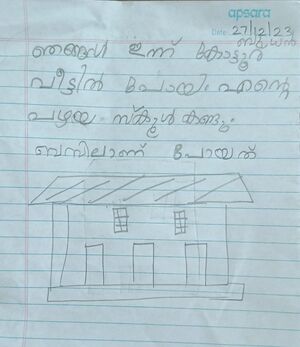 apsara
Date: 27/12/23
ബുധൻ
ഞങ്ങൾ ഇന്ന് കോട്ടൂർ
വീട്ടിൽ പോയി. എന്റെ
പഴയ സ്കൂൾ കണ്ടു.
ബസിലാണ് പോയത്